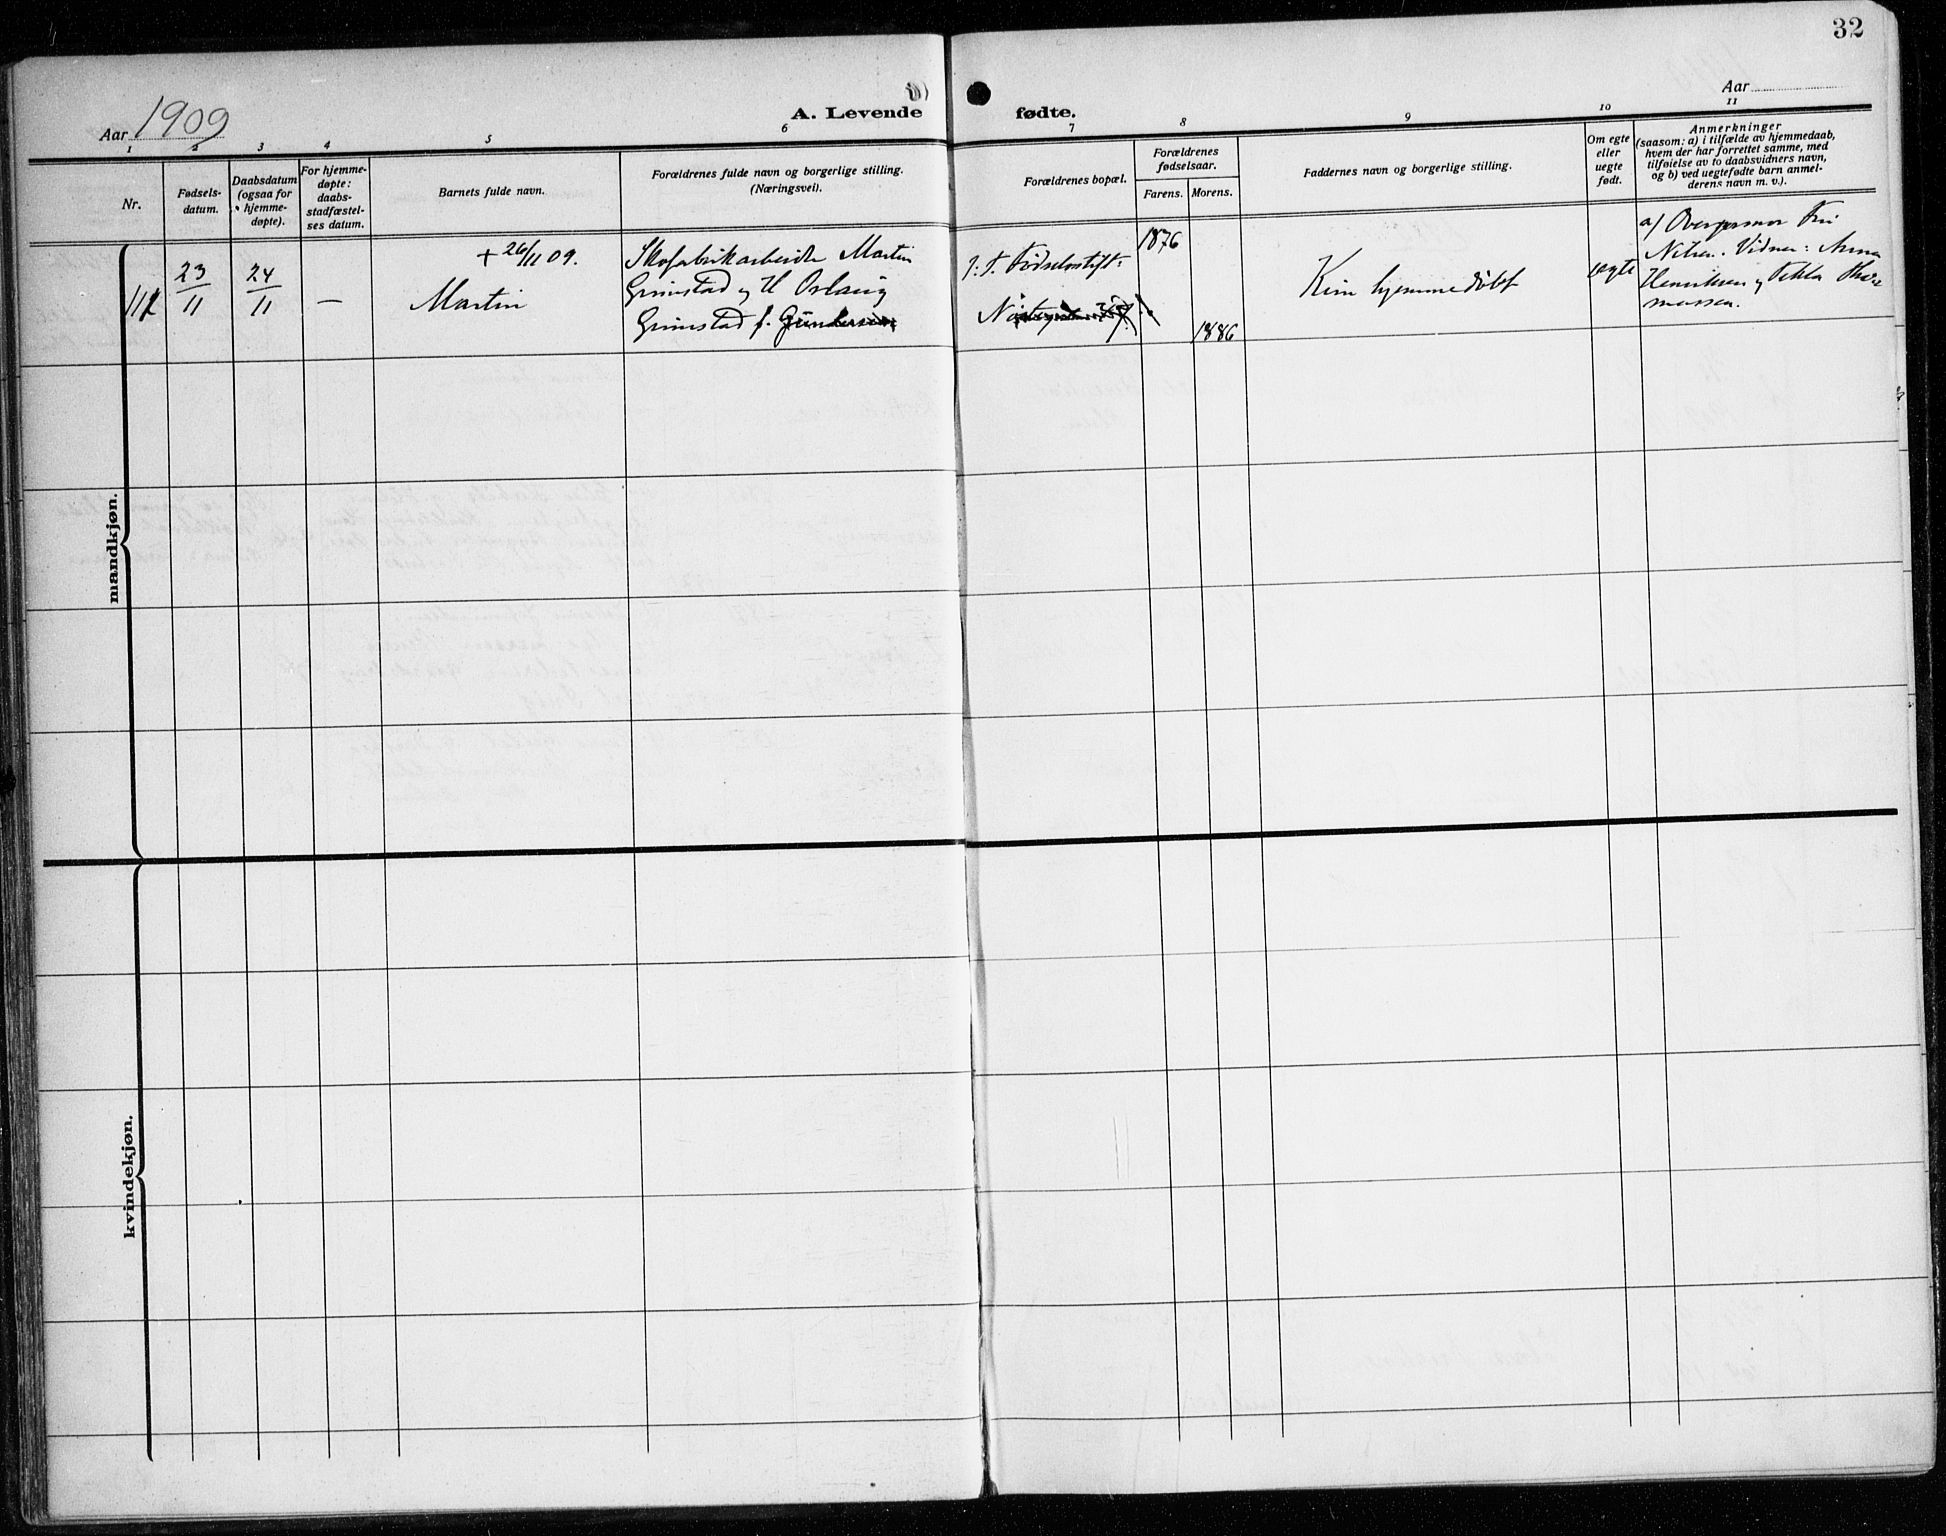 32
Aar 1909
A. Levende fødte.
Aar
1 2 3 4 5 6 7 8 9 10 11
Nr.
Fødsels-
datum.
Daabsdatum
(ogsaa for
hjemme-
døpte).
For hjemme-
døpte:
daabs-
stadfæstel-
ses datum.
Barnets fulde navn.
Forældrenes fulde navn og borgerlige stilling.
(Næringsvei).
Forældrenes bopæl.
Forældrenes
fødselsaar.
Farens. Morens.
Faddernes navn og borgerlige stilling.
Om egte
eller
uegte
født.
Anmerkninger
(saasom: a) i tilfælde av hjemmedaab,
hvem der har forrettet samme, med
tilføielse av to daabsvidners navn,
og b) ved uegtefødte barn anmel-
derens navn m. v.).
mandkjøn.
23/11
24/11
—
+ 26/11 09.
Martin
Skofabrikarbeider Martin
Grimstad og H Oslaug
Grimstad f. Gundersen
Fødselsstift:
1876
1886
Kun hjemmedøbt
ægte
a) Overjormor Fru
Nilsen. Vidner: Anna
Henriksen og Tekla
kvindekjøn.